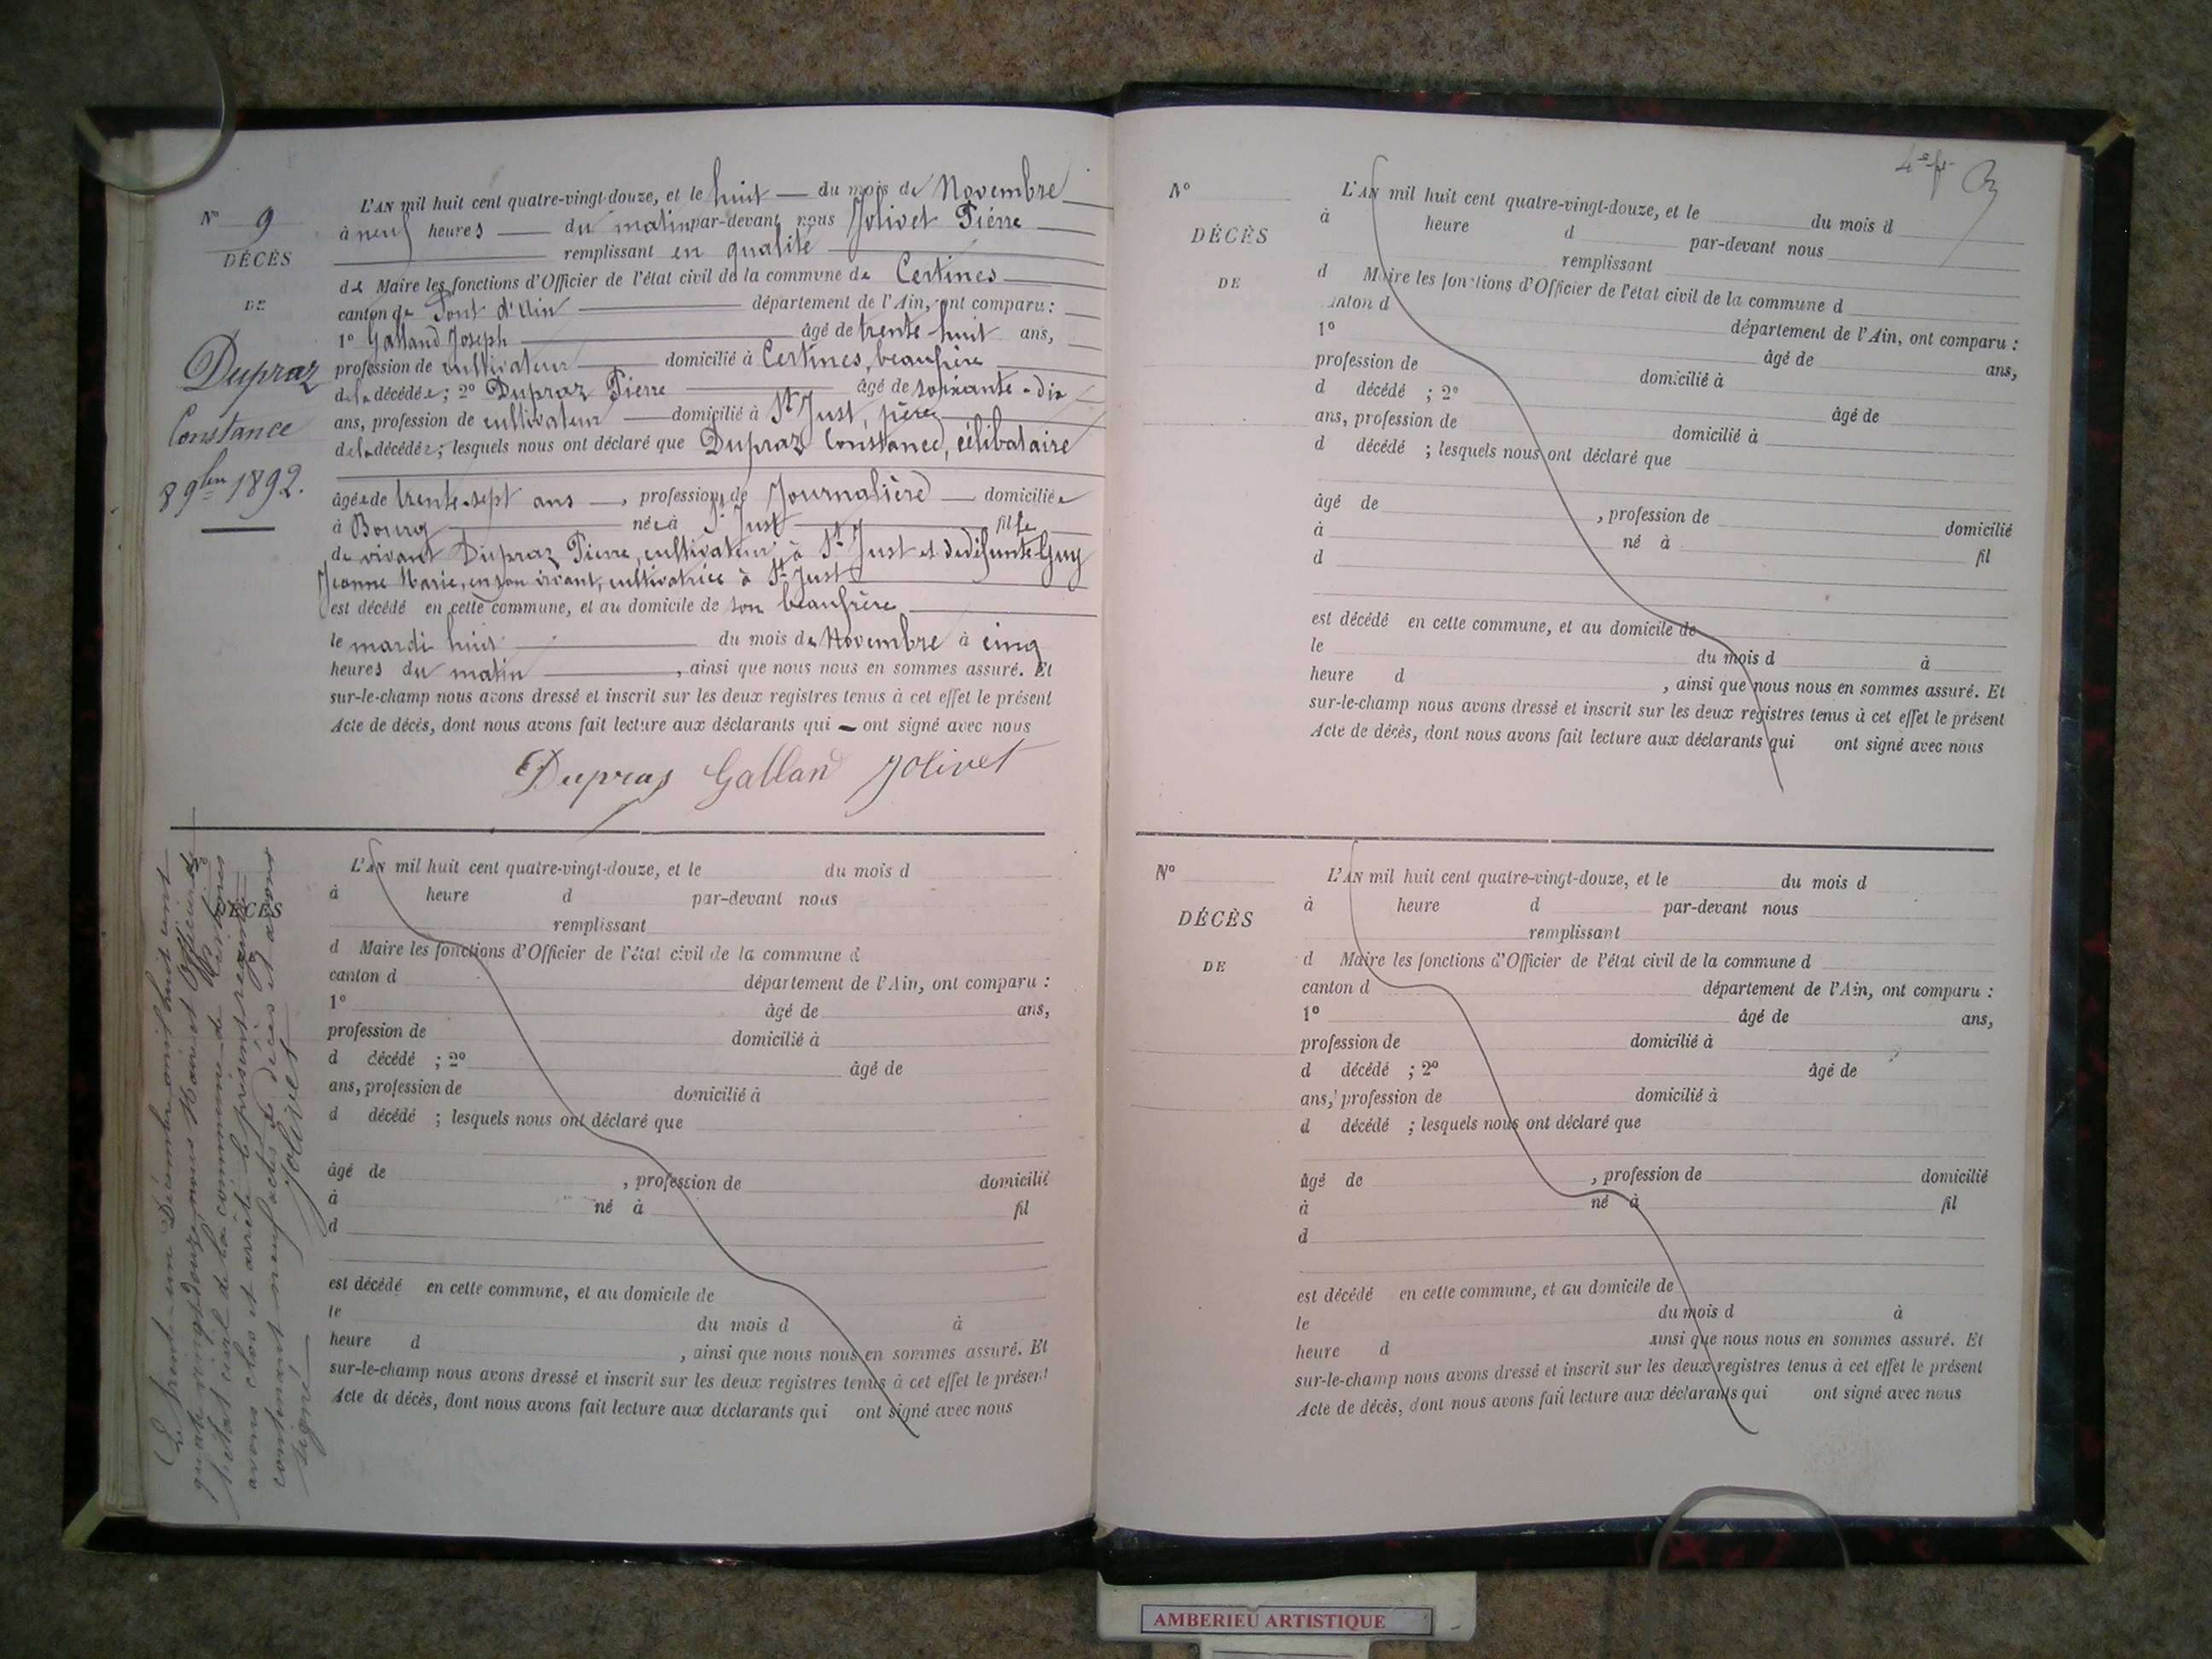 N° 9
DÉCÈS
DE
Dupraz
Constance
8 9bre 1892.
L'AN mil huit cent quatre-vingt-douze, et le huit — du mois de Novembre
à neuf heures — du matin par-devant nous Jolivet Pierre
remplissant en qualité
de Maire les fonctions d'Officier de l'état civil de la commune de Certines
canton de Pont d'Ain département de l'Ain, ont comparu :
1° Galland Joseph âgé de trente huit ans,
profession de cultivateur domicilié à Certines, beaufrère
de la décédée ; 2° Dupraz Pierre âgé de soixante-dix
ans, profession de cultivateur domicilié à St Just, père
de la décédée ; lesquels nous ont déclaré que Dupraz Constance, célibataire
âgée de trente-sept ans —, profession de Journalière — domiciliée
à Bourg née à St Just fille
de vivant Dupraz Pierre, cultivateur à St Just et de défunte Guy
Jeanne Marie, en son vivant, cultivatrice à St Just
est décédé en cette commune, et au domicile de son beaufrère
le mardi huit du mois de Novembre à cinq
heures du matin , ainsi que nous nous en sommes assuré. Et
sur-le-champ nous avons dressé et inscrit sur les deux registres tenus à cet effet le présent
Acte de décès, dont nous avons fait lecture aux déclarants qui — ont signé avec nous
Dupras Galland Jolivet
N°
DÉCÈS
Le trente-un Décembre mil huit cent
quatre vingt douze, nous Maire et Officier de
l'état civil de la commune de Certines
avons clos et arrêté le présent registre
contenant neuf actes de décès et avons
signé
Jolivet
L'AN mil huit cent quatre-vingt-douze, et le du mois d
à heure d par-devant nous
remplissant
d Maire les fonctions d'Officier de l'état civil de la commune d
canton d département de l'Ain, ont comparu :
1° âgé de ans,
profession de domicilié à
d décédé ; 2° âgé de
ans, profession de domicilié à
d décédé ; lesquels nous ont déclaré que
âgé de , profession de domicilié
à né à fil
d
est décédé en cette commune, et au domicile de
le du mois d à
heure d , ainsi que nous nous en sommes assuré. Et
sur-le-champ nous avons dressé et inscrit sur les deux registres tenus à cet effet le présent
Acte de décès, dont nous avons fait lecture aux déclarants qui ont signé avec nous
N°
DÉCÈS
DE
L'AN mil huit cent quatre-vingt-douze, et le du mois d
à heure d par-devant nous
remplissant
d Maire les fonctions d'Officier de l'état civil de la commune d
canton d département de l'Ain, ont comparu :
1° âgé de ans,
profession de domicilié à
d décédé ; 2° âgé de
ans, profession de domicilié à
d décédé ; lesquels nous ont déclaré que
âgé de , profession de domicilié
à né à fil
d
est décédé en cette commune, et au domicile de
le du mois d à
heure d , ainsi que nous nous en sommes assuré. Et
sur-le-champ nous avons dressé et inscrit sur les deux registres tenus à cet effet le présent
Acte de décès, dont nous avons fait lecture aux déclarants qui ont signé avec nous
N°
DÉCÈS
DE
L'AN mil huit cent quatre-vingt-douze, et le du mois d
à heure d par-devant nous
remplissant
d Maire les fonctions d'Officier de l'état civil de la commune d
canton d département de l'Ain, ont comparu :
1° âgé de ans,
profession de domicilié à
d décédé ; 2° âgé de
ans, profession de domicilié à
d décédé ; lesquels nous ont déclaré que
âgé de , profession de domicilié
à né à fil
d
est décédé en cette commune, et au domicile de
le du mois d à
heure d ainsi que nous nous en sommes assuré. Et
sur-le-champ nous avons dressé et inscrit sur les deux registres tenus à cet effet le présent
Acte de décès, dont nous avons fait lecture aux déclarants qui ont signé avec nous
AMBERIEU ARTISTIQUE